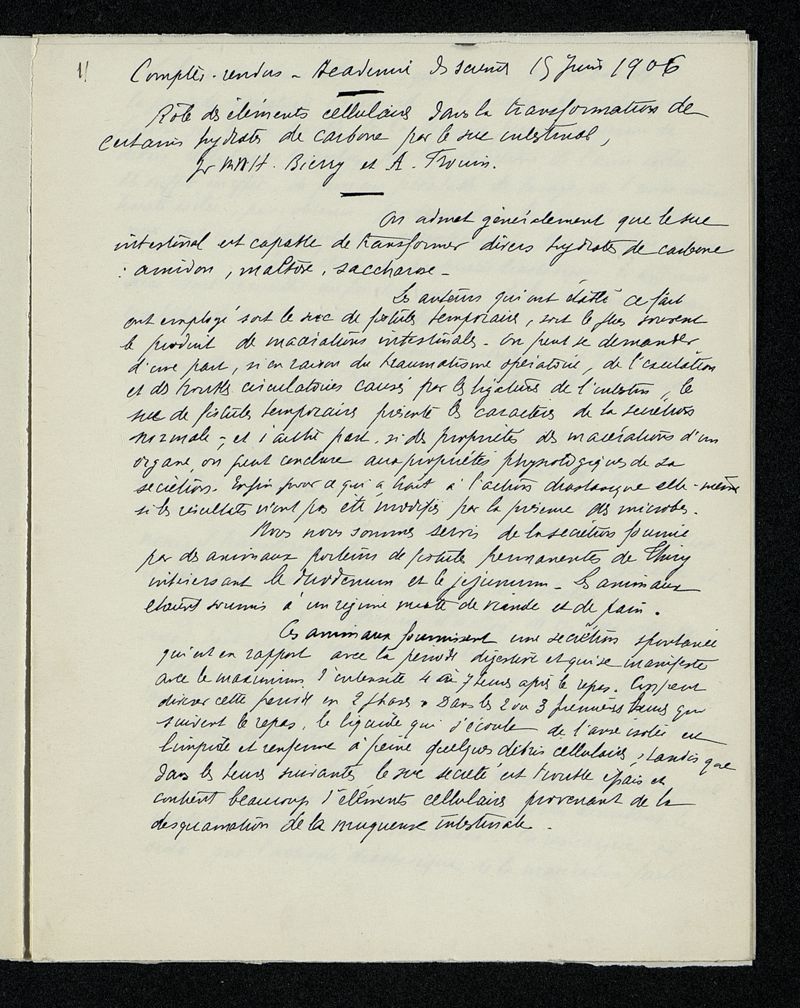 11
Comptes-rendus - Academie des sciences 15 Juin 1906
Rôle des éléments cellulaires dans la transformation de
certains hydrates de carbone par le suc intestinal,
Par MM H. Bierry et A. Frouin.
On admet généralement que le suc
intestinal est capable de transformer divers hydrates de carbone
: amidon, maltose, saccharose -
Les auteurs qui ont établi ce fait
ont employé soit le suc de fistules temporaires, soit le plus souvent
le produit de macérations intestinales. On peut se demander
d'une part, si en raison du traumatisme opératoire, de l'exsudation
et des troubles circulatoires causés par les ligatures de l'intestin, le
suc de fistules temporaires présente les caractères de la secrétion
normale - et d'autre part, si des propriétés des macérations d'un
organe, on peut conclure aux propriétés physiologiques de sa
secrétion. Enfin pour ce qui a trait à l'action diastasique elle-même
si les résultats n'ont pas été modifiés par la présence des microbes.
Nous nous sommes servis de la secrétion fournie
par des animaux porteurs de fistules permanentes de Thiry
intéressant le duodenum et le jejunum - Les animaux
étaient soumis à un régime mixte de viande et de pain.
Ces animaux fournissent une secrétion spontanée
qui est en rapport avec la période digestive et qui se manifeste
avec le maximum d'intensité 4 à 7 heures après le repas. On peut
diviser cette période en 2 phases. Dans les 2 ou 3 premières heures qui
suivent le repas, le liquide qui s'écoule de l'anse isolée est
limpide et renferme à peine quelques débris cellulaires, tandis que
dans les heures suivantes le suc secrété est trouble épais et
contient beaucoup d'éléments cellulaires provenant de la
desquamation de la muqueuse intestinale.